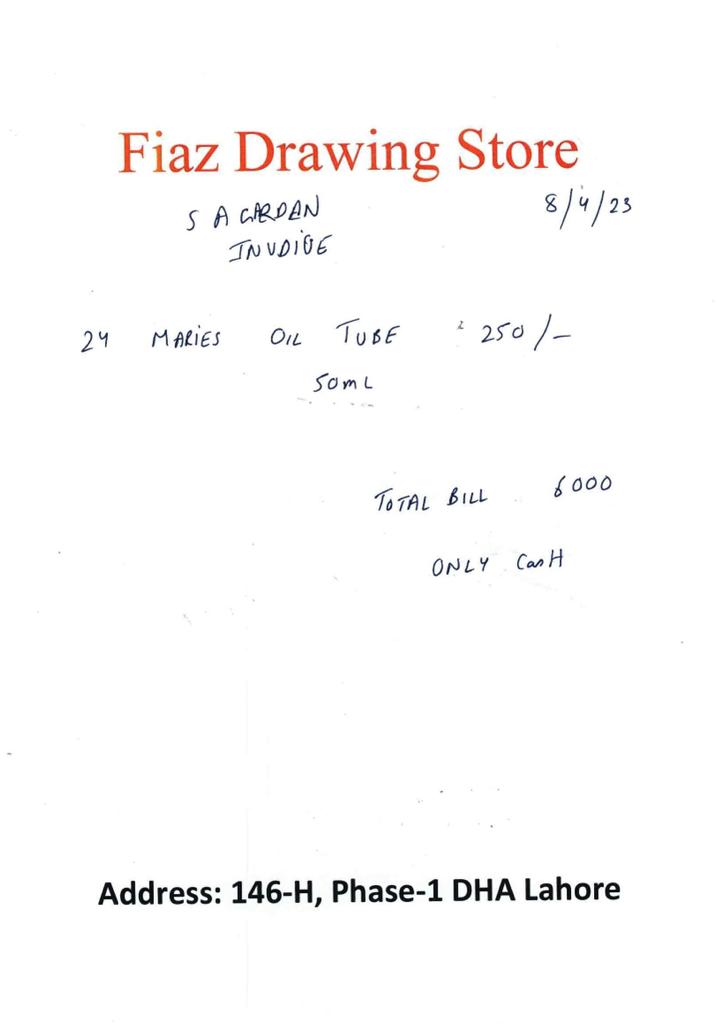 Fiaz Drawing Store
S A GARDAN 8/4/23
INVOICE
24 MARIES OIL TUBE 250/-
50mL
TOTAL BILL 6000
ONLY CasH
Address: 146-H, Phase-1 DHA Lahore